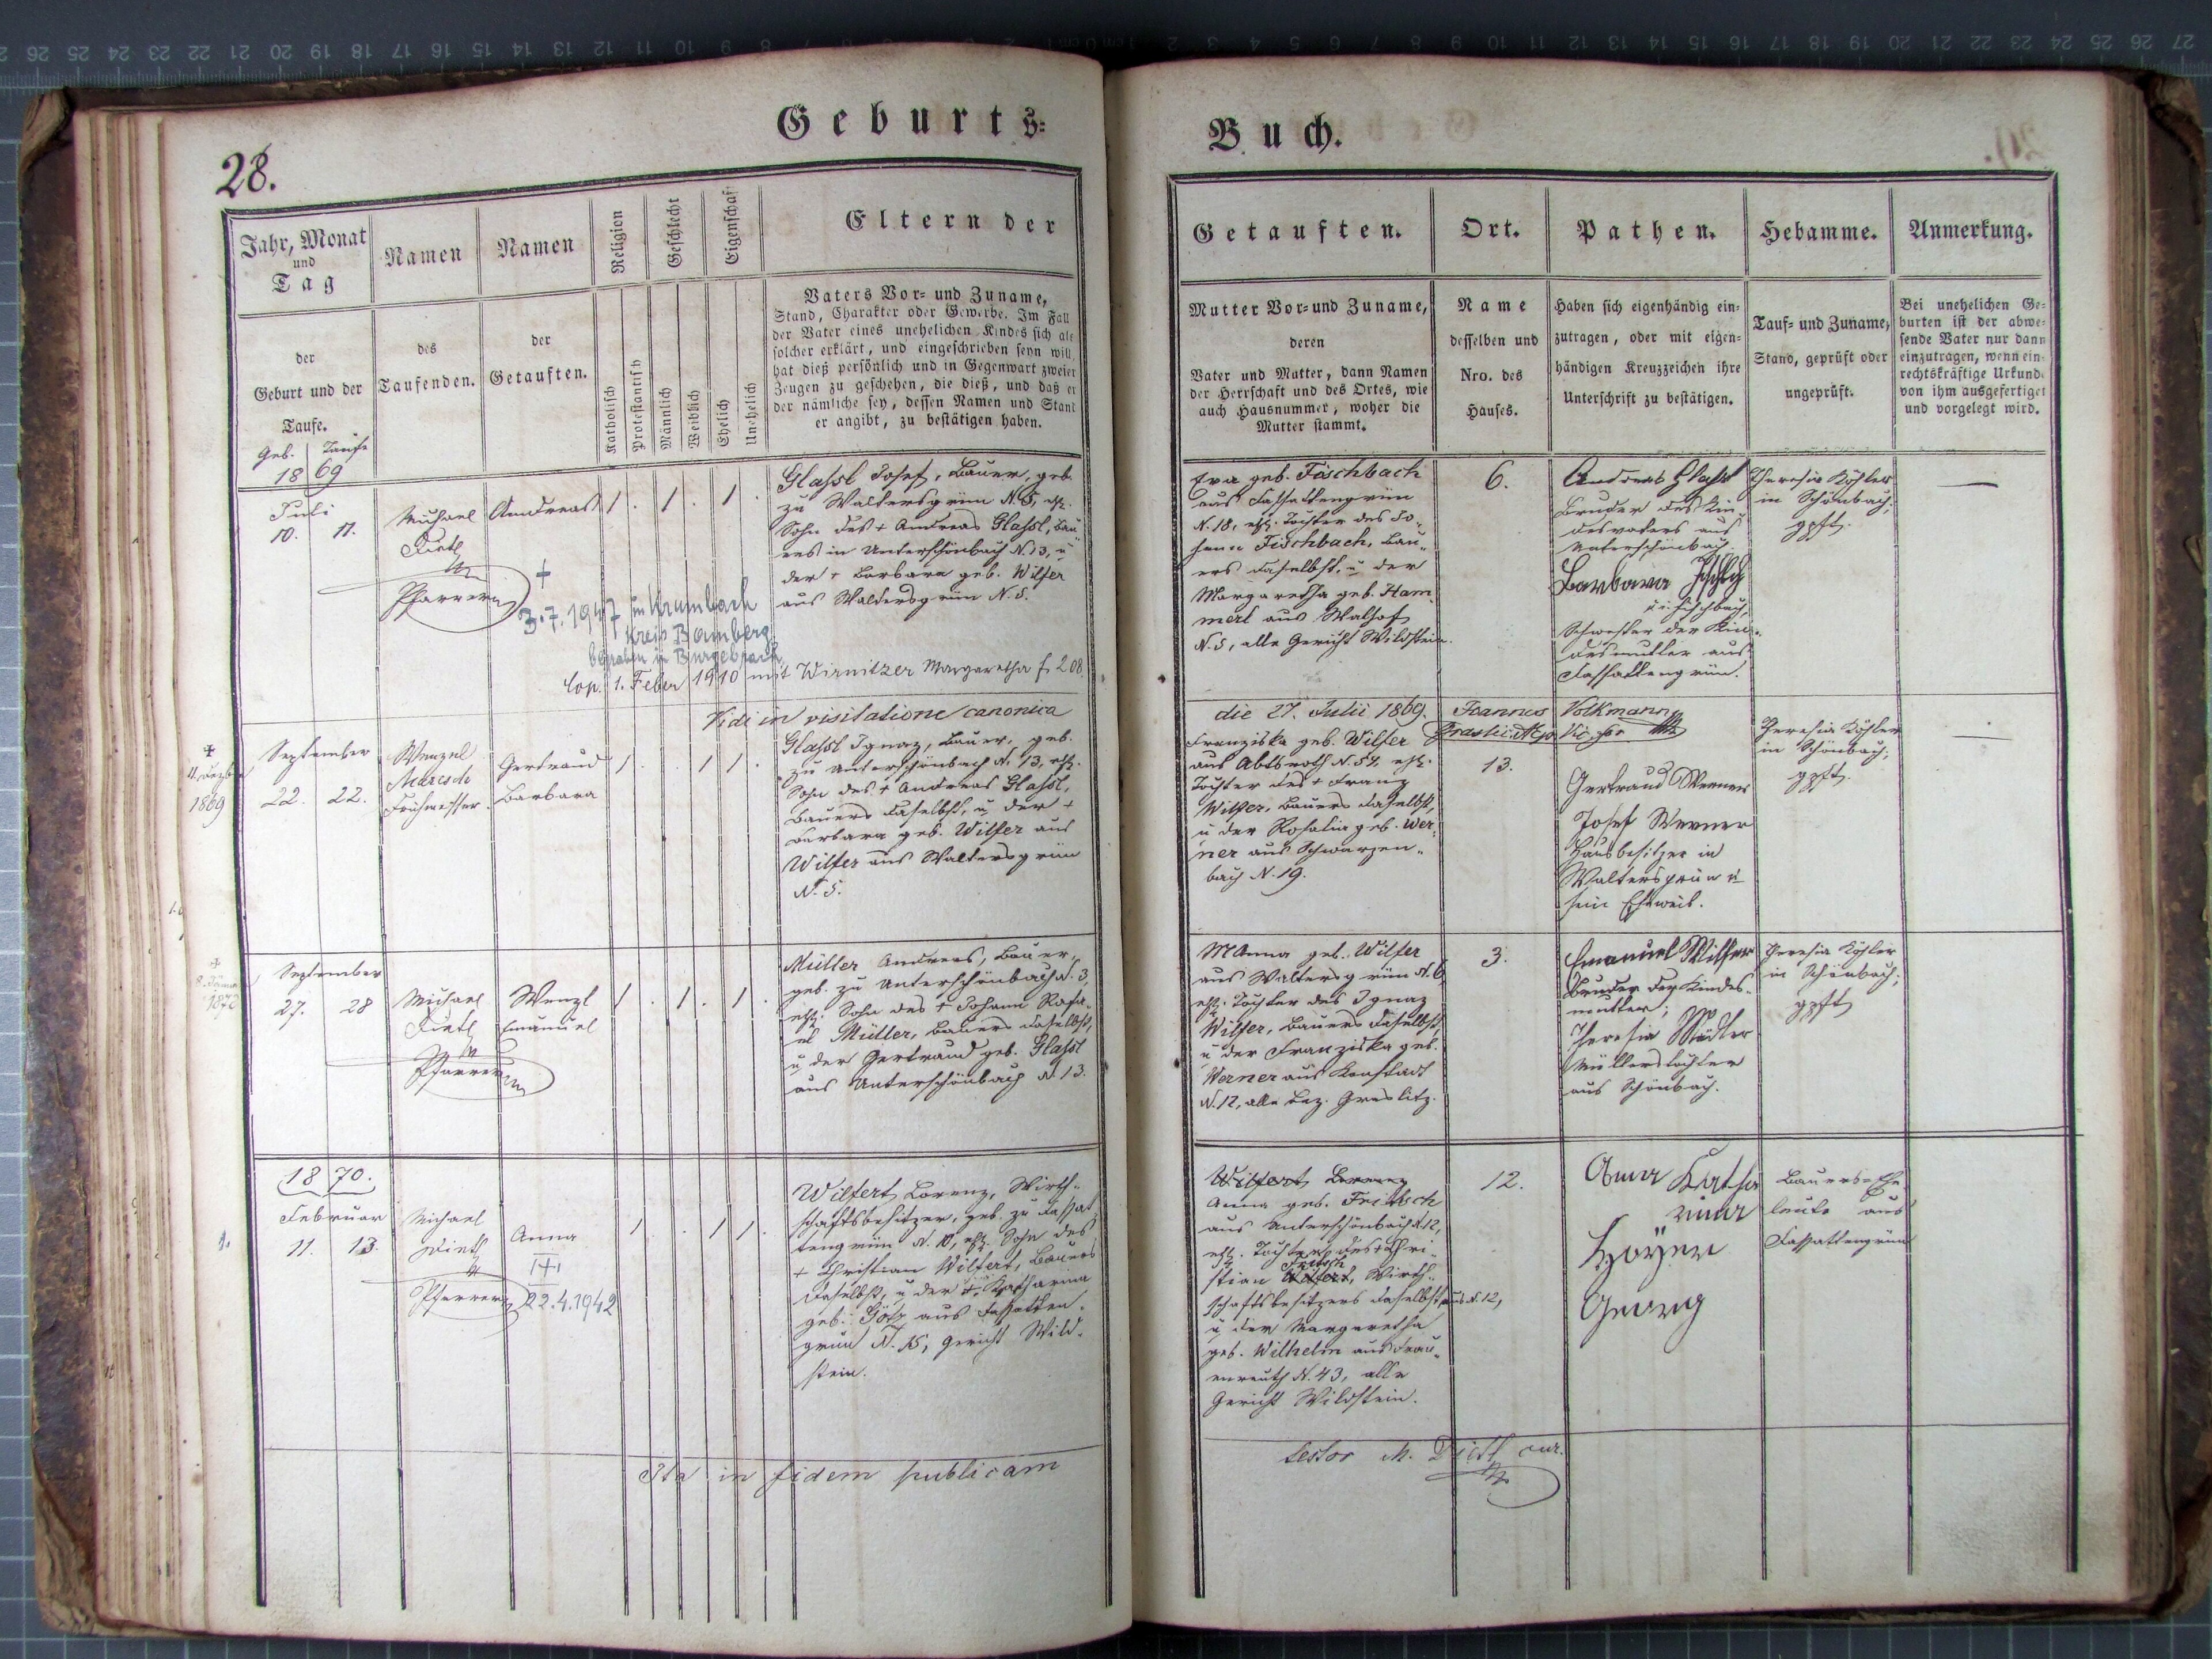 Geburts-
Buch.
28.
Jahr, Monat
und
Tag
der
Geburt und der
Taufe.
Geb. Taufe
1869
Namen
des
Taufenden.
Namen
der
Getauften.
Religion
Katholisch
Protestantisch
Geschlecht
Männlich
Weiblich
Eigenschaf
Ehelich
Unehelich
Eltern der
Vaters Vor- und Zuname,
Stand, Charakter oder Gewerbe. Im Fall
der Vater eines unehelichen Kindes sich als
solcher erklärt, und eingeschrieben seyn will,
hat dieß persönlich und in Gegenwart zweier
Zeugen zu geschehen, die dieß, und daß er
der nämliche sey, dessen Namen und Stand
er angibt, zu bestätigen haben.
Getauften.
Mutter Vor- und Zuname,
deren
Vater und Mutter, dann Namen
der Herrschaft und des Ortes, wie
auch Hausnummer, woher die
Mutter stammt.
Ort.
Name
desselben und
Nro. des
Hauses.
Pathen.
Haben sich eigenhändig ein-
zutragen, oder mit eigen-
händigen Kreuzzeichen ihre
Unterschrift zu bestätigen.
Hebamme.
Tauf- und Zuname,
Stand, geprüft oder
ungeprüft.
Anmerkung.
Bei unehelichen Ge-
burten ist der abwe-
sende Vater nur dann
einzutragen, wenn ein
rechtskräftige Urkunde
von ihm ausgefertiget
und vorgelegt wird.
Juli
10. 11.
Michael
Dietl
Pfarrer
Andreas
1 . 1 . 1 .
Glassl Josef, Bauer, geb.
zu Waltersgrün N. 5, ehl.
Sohn des + Andreas Glassl, Bau-
ers in Unterschönbach N. 13, u
der + Barbara geb. Wilfer
aus Waltersgrün N. 5.
+
3.7.1947 in Krumbach
Kreis Bamberg
begraben in Burgebrach
Cop. 1. Feber 1910 mit Wirnitzer Margaretha f. 208
Eva geb. Fischbach
aus Fassattengrün
N. 18, ehl. Tochter des Jo-
hann Fischbach, Bau-
ers daselbst, u der
Margaretha geb. Ham-
merl aus Walhof
N. 5, alle Gericht Wildstein.
6.
Andreas Glassl
Bruder des Kin-
desvaters aus
Unterschönbach.
Barbara
Schwester der Kin-
desmutter aus
Fassattengrün.
Theresia Köhler
in Schönbach,
gpft.
—
Vidi in visitatione canonica
die 27. Julii 1869. Joannes Volkmann
+
1869
September
22. 22.
Wenzel
Maresch
Frühmesser
Gertraud
Barbara
1 . . 1 1 .
Glassl Ignaz, Bauer, geb.
zu Unterschönbach N. 13, ehl.
Sohn des + Andreas Glassl,
Bauers daselbst, u der +
Barbara geb. Wilfer aus
Wilfer aus Waltersgrün
N. 5.
Franziska geb. Wilfer
aus Abtsroth N. 54. ehl.
Tochter des + Franz
Wilfer, Bauers daselbst,
u der Rosalia geb. Wer-
ner aus Schwarzen-
bach N. 19.
13.
Gertraud Werner
Josef Werner
Hausbesitzer in
Waltersgrün u
sein Eheweib.
Theresia Köhler
in Schönbach,
gpft.
—
+
1872
September
27. 28
Michael
Dietl
Pfarrer
Wenzl
Emanuel
1 . 1 . 1 .
Müller Andreas, Bauer,
geb. zu Unterschönbach N. 3,
ehl. Sohn des + Johann Rafa-
el Müller, Bauers daselbst,
u der Gertraud geb. Glassl
aus Unterschönbach N. 13.
M Anna geb. Wilfer
aus Waltersgrün N. 6,
ehl. Tochter des Ignaz
Wilfer, Bauers daselbst,
u der Franziska geb.
Werner aus Konstadt
N. 12, alle Bez. Graslitz.
3.
Emanuel Wilfer
Bruder der Kindes-
mutter;
Theresia Städler
Müllerstochter
aus Schönbach.
Theresia Köhler
in Schönbach,
gpft
1870.
Februar
11. 13.
Michael
Dietl
Pfarrer
Anna
22.4.1942
1 . . 1 1 .
Wilfert Lorenz, Wirth-
schaftsbesitzer, geb. zu Fassat-
tengrün N. 10, ehl. Sohn des
+ Christian Wilfert, Bauers
daselbst, u der + Katharina
geb. Götz aus Fassatten-
grün N. 15, Gericht Wild-
stein.
Wilfert Lorenz
Anna geb. Fritsch
aus Unterschönbach N. 12,
ehl. Tochter des + Chri-
stian Fritsch, Wirth-
schaftsbesitzers daselbst aus N. 12,
u der Margaretha
geb. Wilhelm aus Frau-
enreuth N. 43, alle
Gericht Wildstein.
12.
Anna Katha
rina
Hoyer
Georg
Bauers-Ehe
leute aus
Fassattengrün
Ita in fidem publicam
testor M. Dietl cur.